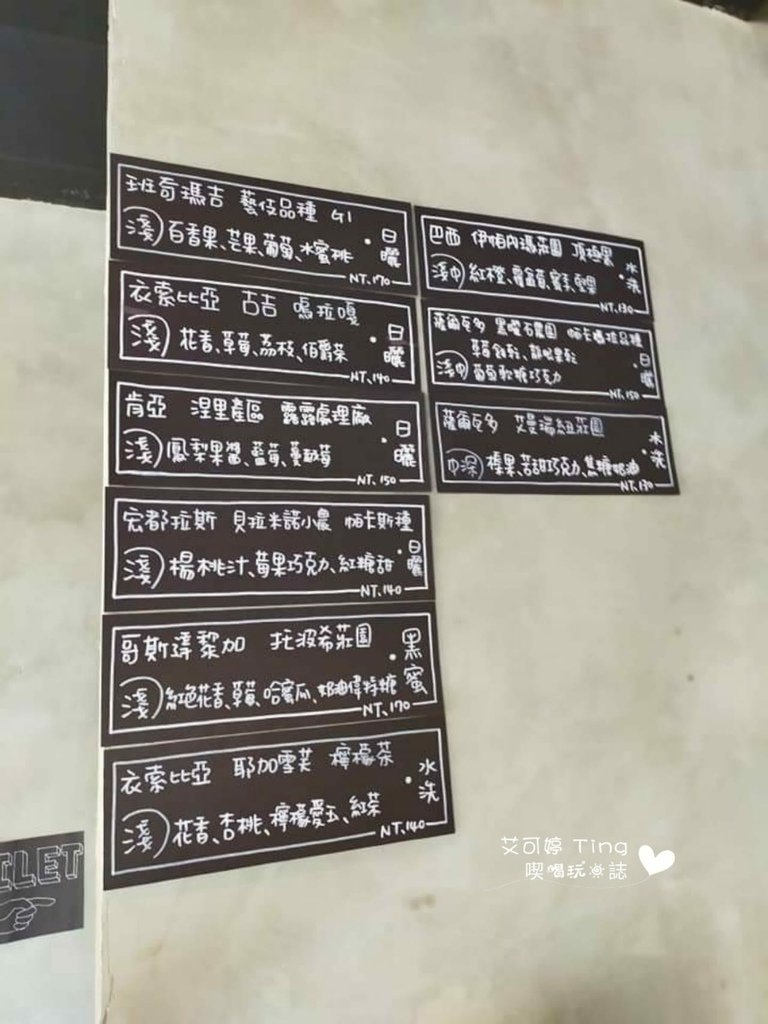 班奇瑪吉 藝伎品種 G1
淺 百香果、芒果、葡萄、水蜜桃
·日曬
NT.170
衣索比亞 古吉 嗚拉嘎
淺 花香、草莓、荔枝、伯爵茶
·日曬
NT.140
肯亞 涅里產區 露露處理廠
淺 鳳梨果醬、藍莓、蔓越莓
·日曬
NT.150
宏都拉斯 貝拉米諾小農 帕卡斯種
淺 楊桃汁、莓果巧克力、紅糖甜
·日曬
NT.140
哥斯達黎加 托波希莊園
淺 紅色花香、草莓、哈蜜瓜、奶油偉特糖
·黑蜜
NT.170
衣索比亞 耶加雪芙 檸檬茶
淺 花香、杏桃、檸檬愛玉、紅茶
·水洗
NT.140
巴西 伊帕內瑪莊園 頂極黑
淺中 紅橙、蘿蔔、蜜李、堅果
·水洗
NT.130
薩爾瓦多 黑曜石農園 帕卡瑪拉品種
草莓餅乾、龍眼果乾
淺中 葡萄軟糖巧克力
·日曬
NT.150
薩爾瓦多 艾曼瑞紐莊園
中深 榛果、苦甜巧克力、焦糖奶油
·水洗
NT.130
ILET
艾可婷 Ting
喫喝玩樂誌